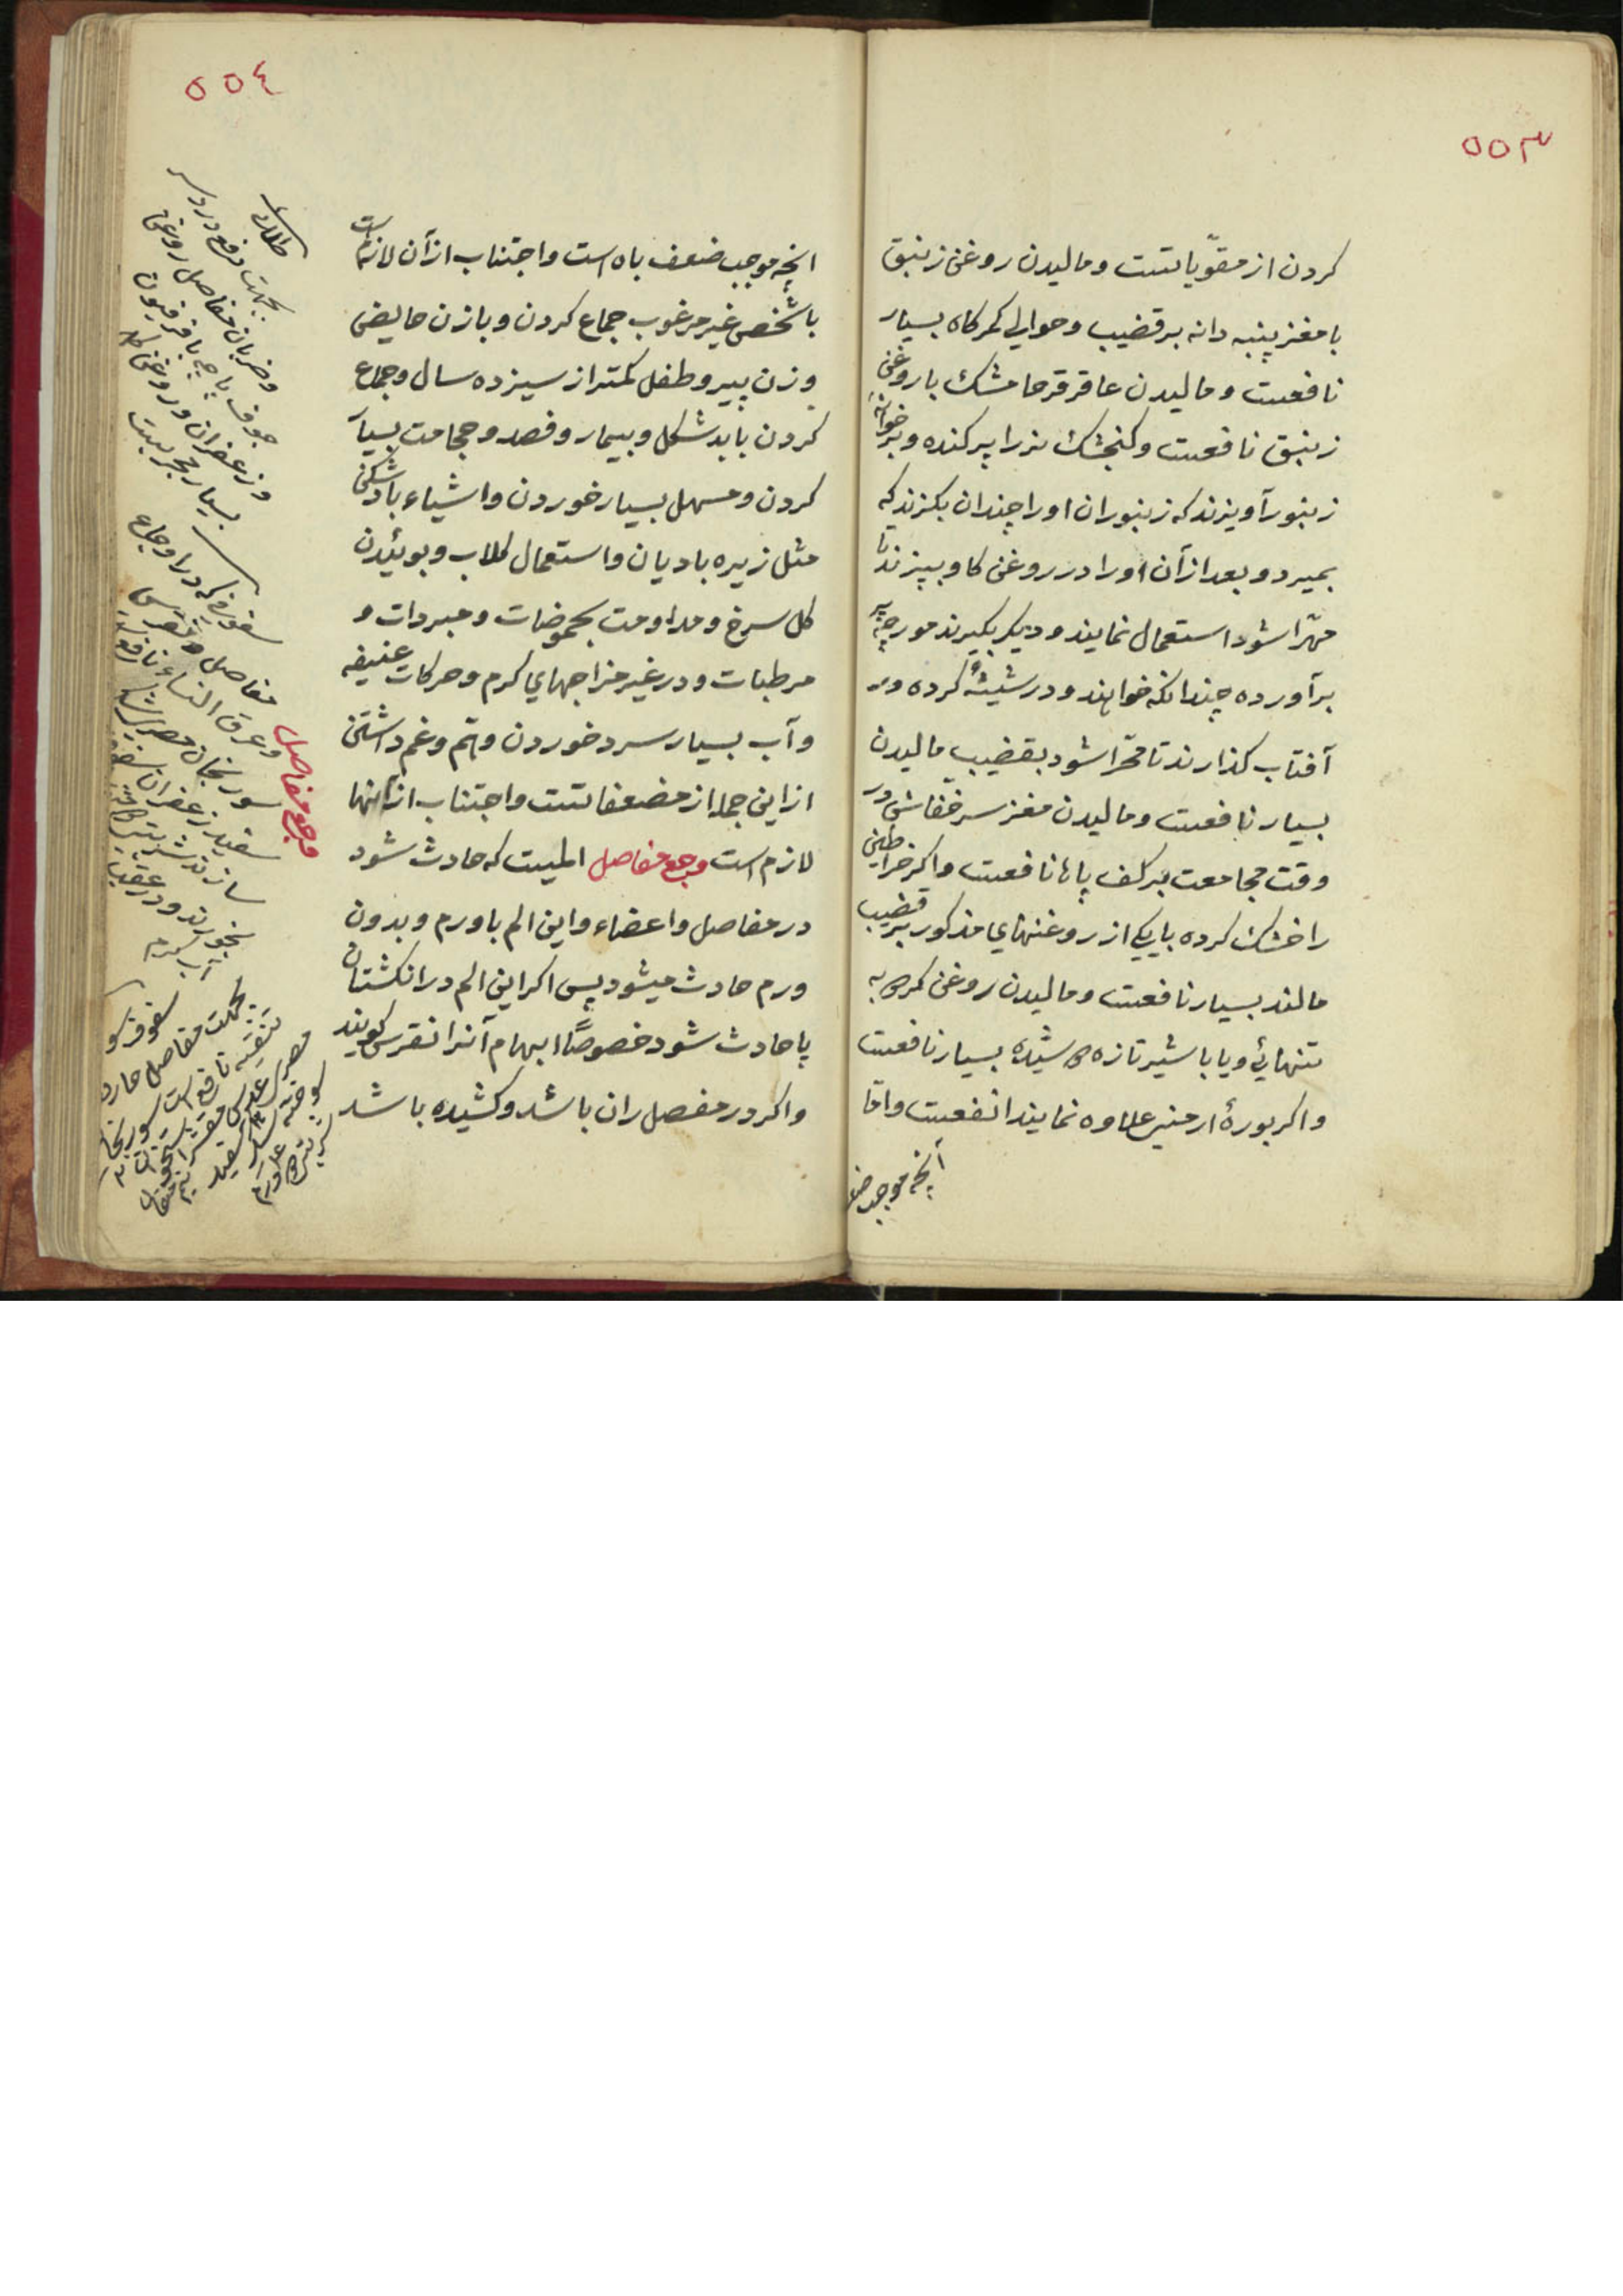 ۵۵۳
کردن از مقوّیاتست و مالیدن روغن زنبق
با مغز پنبه دانه بر قضیب و حوالی کمرکاه بسیار
نافعست و مالیدن عاقرقرحا مشک با روغن
زنبق نافعست و کنجشک نر را پر کنده و بر خوانه
زنبور آویزند که زنبوران او را چندان بکزند که
بمیرد و بعد از آن او را در روغن کاو بپزند تا
مهرّا شود استعمال نمایند و دیکر بکیرند مورچه پر
بر آورده چندانکه خواهند و در شیشهٔ کرده در
آفتاب کذارند تا مهرّا شود بقضیب مالیدن
بسیار نافعست و مالیدن مغز سر خفاش در
وقت مجامعت بر کف پاها نافعست و اکر خراطین
را خشک کرده با یکی از روغنهای مذکور بر قضیب
مالند بسیار نافعست و مالیدن روغن کرم به
تنهائی و یا با شیر تازه دوشیده بسیار نافعست
و اکر بورهٔ ارمنی علاوه نمایند انفعست و امّا
آنچه موجب ضعف
۵۵۴
انچه موجب ضعف باه است و اجتناب از آن لازمست
با شخص غیر مرغوب جماع کردن و با زن حایض
و زن پیر و طفل کمتر از سیزده سال و جماع
کردن با بد شکل و بیمار و فصد و حجامت بسیار
کردن و مسهل بسیار خوردن و اشیاء بادشکن
مثل زیره بادیان و استعمال کلاب و بوئیدن
کل سرخ و مداومت بحموضات و مبردات و
مرطبات و در غیر مزاجهای کرم و حرکات عنیفه
و آب بسیار سرد خوردن و همّ و غم داشتن
از این جمله از مضعفاتست و اجتناب از آنها
لازم است وجع مفاصل المیست که حادث شود
در مفاصل و اعضاء و این الم با ورم و بدون
ورم حادث میشود پس اکر این الم در انکشتان
پا حادث شود خصوصًا ابهام آنرا نقرس کویند
و اکر در مفصل ران باشد و کشیده باشد
طلائی
بجهت رفع درد سر
و ضربان مفاصل روغن
جوف پاچه با فرفیون
و زعفران و روغن کل
بسیار مجربست
سفوفی که در اوجاع
مفاصل و نقرس
و عرق النساء نافع است
سورنجان مصری شکر
سفید زعفران سفوف
سازند شربتی
بخورند و در عقب
آب کرم
وجع مفاصل
سفوف سورنجان
بجهت مفاصل حاره
تنقیه نافع است سورنجان